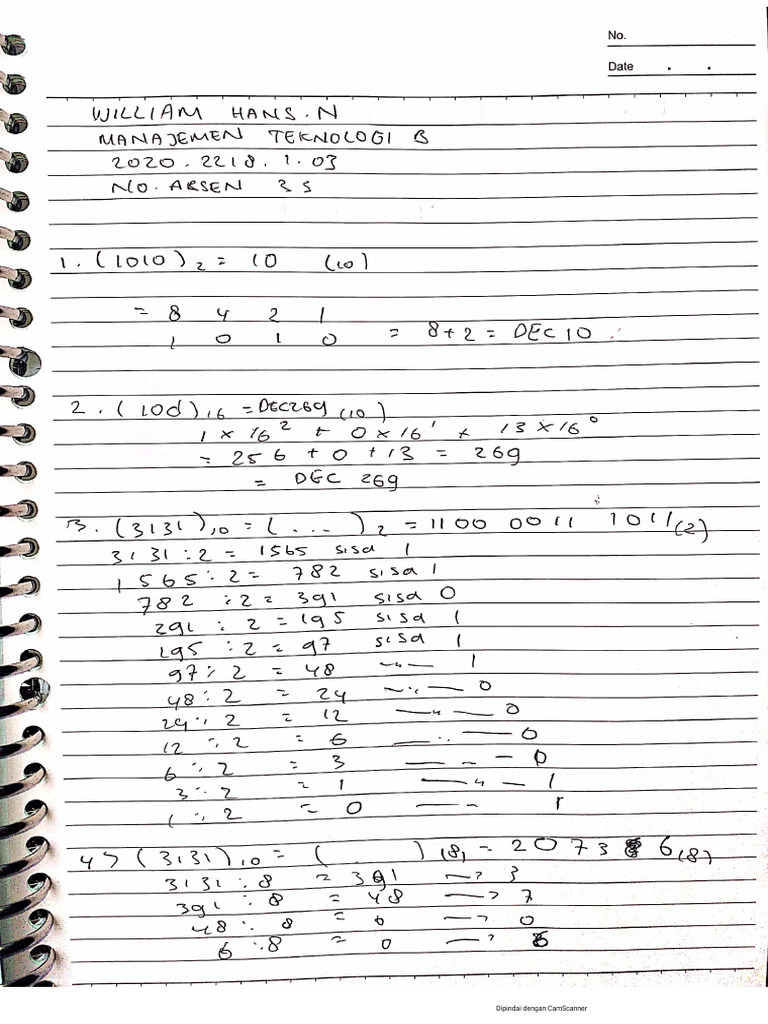 No.
Date . .
WILLIAM HANS.N
MANAJEMEN TEKNOLOGI B
2020.2218.1.03
NO. ABSEN 35
1. (1010)2 = 10 (10)
= 8 4 2 1
1 0 1 0 = 8+2 = DEC 10
2. (10d)16 = DEC269 (10)
1 x 16² + 0 x 16¹ + 13 x 16⁰
= 256 + 0 + 13 = 269
= DEC 269
3. (3131)10 = (...)2 = 1100 0011 1011(2)
3131 : 2 = 1565 sisa 1
1565 : 2 = 782 sisa 1
782 : 2 = 391 sisa 0
291 : 2 = 195 sisa 1
195 : 2 = 97 sisa 1
97 : 2 = 48 —〃— 1
48 : 2 = 24 —〃— 0
24 : 2 = 12 —〃— 0
12 : 2 = 6 —〃— 0
6 : 2 = 3 —〃— 0
3 : 2 = 1 —〃— 1
1 : 2 = 0 —〃 1
4> (3131)10 = ( . . . )(8) = 2073 6(8)
3131 : 8 = 391 —> 3
391 : 8 = 48 —> 7
48 : 8 = 6 —> 0
6 : 8 = 0 —> 6
Dipindai dengan CamScanner